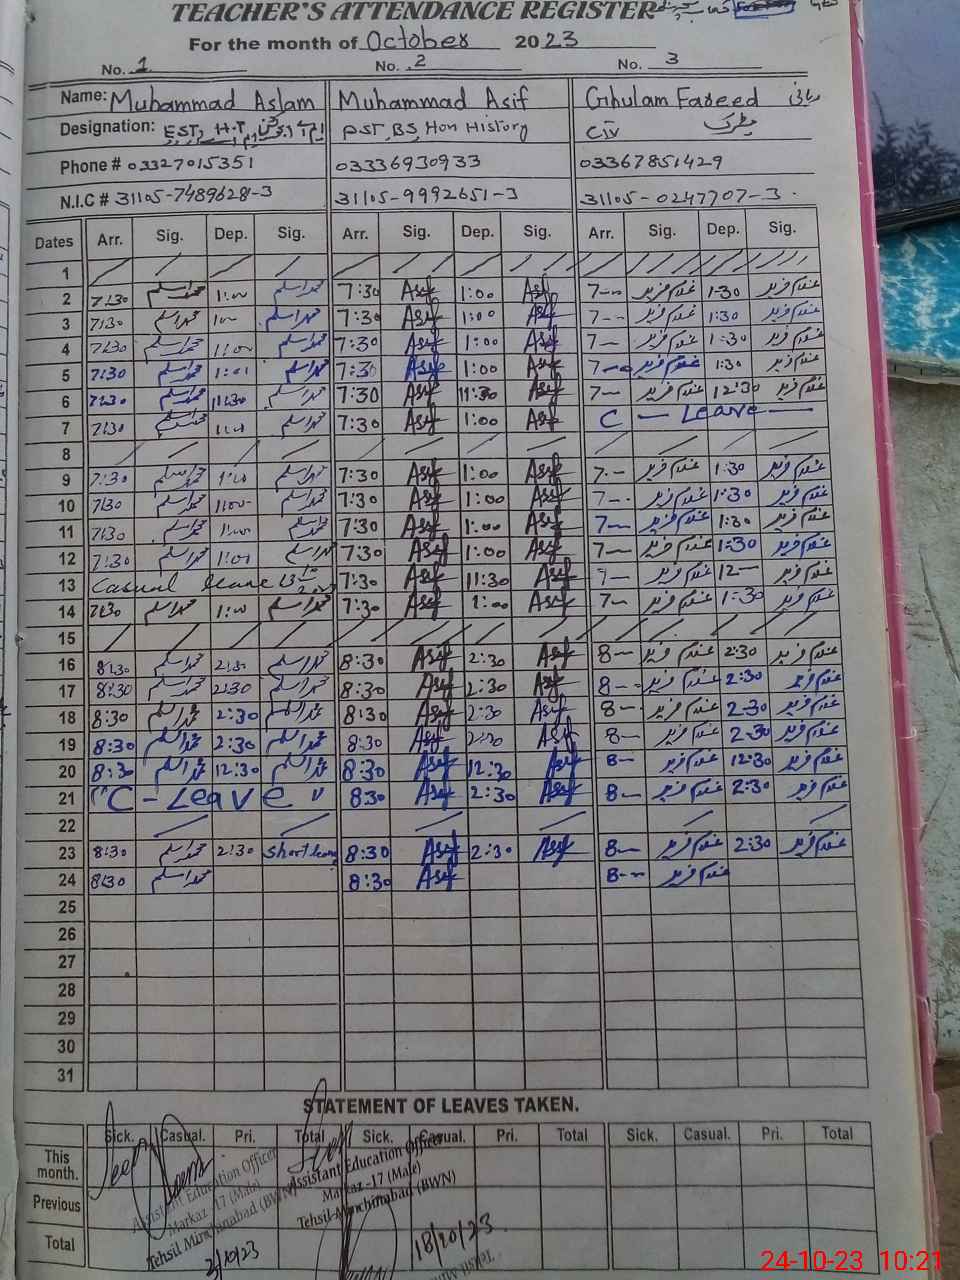 TEACHER'S ATTENDANCE REGISTER
For the month of October 2023
No. 1 No. 2 No. 3
Name: Muhammad Aslam Muhammad Asif Ghulam Fareed ربانی
Designation: EST, H.T PST, BS, Hon History CIV میٹرک
Phone # 03327015351 03336930933 03367851429
N.I.C # 31105-7489628-3 31105-9992651-3 31105-0247707-3
Dates Arr. Sig. Dep. Sig. Arr. Sig. Dep. Sig. Arr. Sig. Dep. Sig.
1
2 7:30 محمد اسلم 1:00 محمد اسلم 7:30 Asif 1:00 Asif 7-- غلام فرید 1:30 غلام فرید
3 7:30 محمد اسلم 1:00 محمد اسلم 7:30 Asif 1:00 Asif 7-- غلام فرید 1:30 غلام فرید
4 7:30 محمد اسلم 1:00 محمد اسلم 7:30 Asif 1:00 Asif 7-- غلام فرید 1:30 غلام فرید
5 7:30 محمد اسلم 1:01 محمد اسلم 7:30 Asif 1:00 Asif 7-- غلام فرید 1:30 غلام فرید
6 7:30 محمد اسلم 11:30 محمد اسلم 7:30 Asif 11:30 Asif 7-- غلام فرید 12:30 غلام فرید
7 7:30 محمد اسلم 1:01 محمد اسلم 7:30 Asif 1:00 Asif C - Leave -
8
9 7:30 محمد اسلم 1:00 محمد اسلم 7:30 Asif 1:00 Asif 7-- غلام فرید 1:30 غلام فرید
10 7:30 محمد اسلم 1:00 محمد اسلم 7:30 Asif 1:00 Asif 7-- غلام فرید 1:30 غلام فرید
11 7:30 محمد اسلم 1:00 محمد اسلم 7:30 Asif 1:00 Asif 7-- غلام فرید 1:30 غلام فرید
12 7:30 محمد اسلم 1:00 محمد اسلم 7:30 Asif 1:00 Asif 7-- غلام فرید 1:30 غلام فرید
13 Casual leave 13 7:30 Asif 11:30 Asif 7-- غلام فرید 12-- غلام فرید
14 7:30 محمد اسلم 1:00 محمد اسلم 7:30 Asif 1:00 Asif 7-- غلام فرید 1:30 غلام فرید
15
16 8:30 محمد اسلم 2:30 محمد اسلم 8:30 Asif 2:30 Asif 8-- غلام فرید 2:30 غلام فرید
17 8:30 محمد اسلم 2:30 محمد اسلم 8:30 Asif 2:30 Asif 8-- غلام فرید 2:30 غلام فرید
18 8:30 محمد اسلم 2:30 محمد اسلم 8:30 Asif 2:30 Asif 8-- غلام فرید 2:30 غلام فرید
19 8:30 محمد اسلم 2:30 محمد اسلم 8:30 Asif 2:30 Asif 8-- غلام فرید 2:30 غلام فرید
20 8:30 محمد اسلم 12:30 محمد اسلم 8:30 Asif 12:30 Asif 8-- غلام فرید 12:30 غلام فرید
21 "C - Leave" 8:30 Asif 2:30 Asif 8-- غلام فرید 2:30 غلام فرید
22
23 8:30 محمد اسلم 2:30 Short leave 8:30 Asif 2:30 Asif 8-- غلام فرید 2:30 غلام فرید
24 8:30 محمد اسلم 8:30 Asif 8-- غلام فرید
25
26
27
28
29
30
31
STATEMENT OF LEAVES TAKEN.
Sick. Casual. Pri. Total Sick. Casual. Pri. Total Sick. Casual. Pri. Total
This month.
Previous
Total
Assistant Education Officer
Markaz -17 (Male)
Tehsil Minchinabad (BWN)
Assistant Education Officer
Markaz -17 (Male)
Tehsil Minchinabad (BWN)
18/10/23
24-10-23 10:21